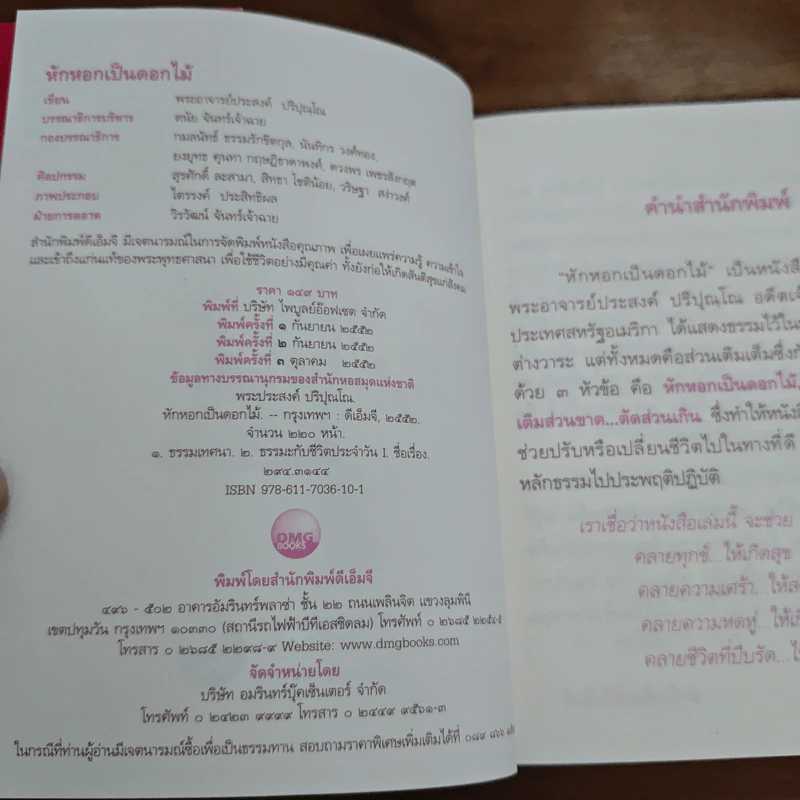 หักหอกเป็นดอกไม้
เขียน พระอาจารย์ประสงค์ ปริปุณฺโณ
บรรณาธิการบริหาร ดนัย จันทร์เจ้าฉาย
กองบรรณาธิการ กมลนัทธ์ ธรรมรักขิตกุล, นันทิกร วงศ์ทอง,
ยงยุทธ คุนทา กฤษฎิธาดาพงศ์, ดวงพร เพชรสังกฤต
ศิลปกรรม สุรศักดิ์ ละสามา, สิทธา โชติน้อย, วริษฐา สง่าวงศ์
ภาพประกอบ ไตรรงค์ ประสิทธิผล
ฝ่ายการตลาด วิรวัฒน์ จันทร์เจ้าฉาย
สำนักพิมพ์ดีเอ็มจี มีเจตนารมณ์ในการจัดพิมพ์หนังสือคุณภาพ เพื่อเผยแพร่ความรู้ ความเข้าใจ
และเข้าถึงแก่นแท้ของพระพุทธศาสนา เพื่อใช้ชีวิตอย่างมีคุณค่า ทั้งยังก่อให้เกิดสันติสุขแก่สังคม
ราคา ๑๔๙ บาท
พิมพ์ที่ บริษัท ไพบูลย์อ๊อฟเซต จำกัด
พิมพ์ครั้งที่ ๑ กันยายน ๒๕๕๒
พิมพ์ครั้งที่ ๒ กันยายน ๒๕๕๒
พิมพ์ครั้งที่ ๓ ตุลาคม ๒๕๕๒
ข้อมูลทางบรรณานุกรมของสำนักหอสมุดแห่งชาติ
พระประสงค์ ปริปุณฺโณ.
หักหอกเป็นดอกไม้. -- กรุงเทพฯ : ดีเอ็มจี, ๒๕๕๒.
จำนวน ๒๒๐ หน้า.
๑. ธรรมเทศนา. ๒. ธรรมะกับชีวิตประจำวัน I. ชื่อเรื่อง.
๒๙๔.๓๑๔๔
ISBN 978-611-7036-10-1
DMG
BOOKS
พิมพ์โดยสำนักพิมพ์ดีเอ็มจี
๔๙๖ - ๕๐๒ อาคารอัมรินทร์พลาซ่า ชั้น ๒๒ ถนนเพลินจิต แขวงลุมพินี
เขตปทุมวัน กรุงเทพฯ ๑๐๓๓๐ (สถานีรถไฟฟ้าบีทีเอสชิดลม) โทรศัพท์ ๐ ๒๖๘๕
โทรสาร ๐ ๒๖๘๕ ๒๒๙๘-๙ Website: www.dmgbooks.com
จัดจำหน่ายโดย
บริษัท อมรินทร์บุ๊คเซ็นเตอร์ จำกัด
โทรศัพท์ ๐ ๒๔๒๓ ๙๙๙๙ โทรสาร ๐ ๒๔๔๙ ๙๕๖๑-๓
ในกรณีที่ท่านผู้อ่านมีเจตนารมณ์ซื้อเพื่อเป็นธรรมทาน สอบถามราคาพิเศษเพิ่มเติมได้ที่ ๐๘๙ ๘๖๖
คำนำสำนักพิมพ์
"หักหอกเป็นดอกไม้" เป็นหนังสือ
พระอาจารย์ประสงค์ ปริปุณฺโณ อดีตเจ้
ประเทศสหรัฐอเมริกา ได้แสดงธรรมไว้ใน
ต่างวาระ แต่ทั้งหมดคือส่วนเติมเต็มซึ่งกั
ด้วย ๓ หัวข้อ คือ หักหอกเป็นดอกไม้.
เติมส่วนขาด...ตัดส่วนเกิน ซึ่งทำให้หนังสื
ช่วยปรับหรือเปลี่ยนชีวิตไปในทางที่ดี
หลักธรรมไปประพฤติปฏิบัติ
เราเชื่อว่าหนังสือเล่มนี้ จะช่วย
คลายทุกข์...ให้เกิดสุข
คลายความเศร้า...ให้ส
คลายความหดหู่...ให้เกิ
คลายชีวิตที่บีบรัด...ใ